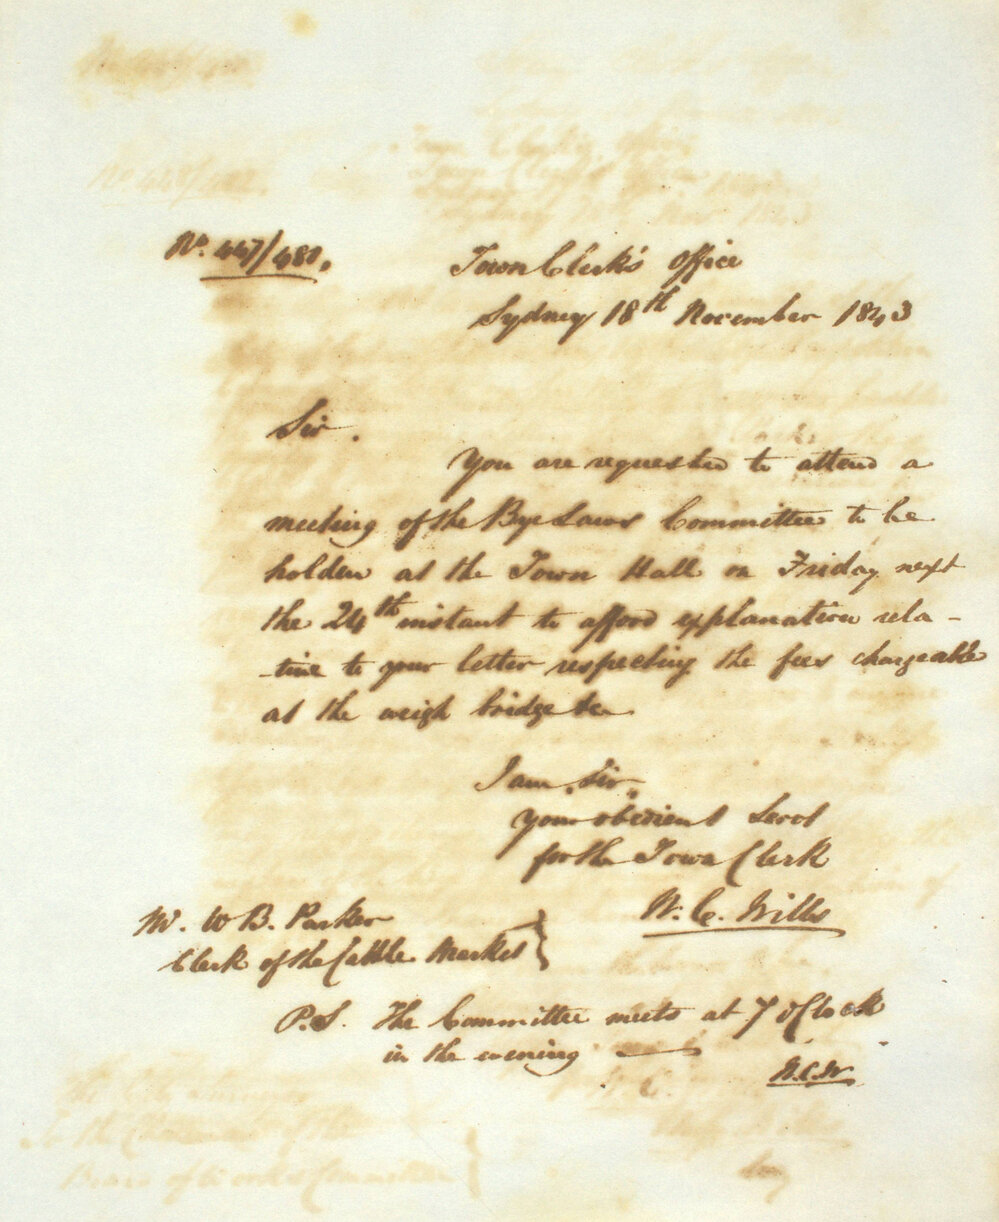 No. 447/480.
Town Clerk's Office
Sydney 18th November 1843
Sir.
You are requested to attend a
meeting of the Bye Laws Committee to be
holden at the Town Hall on Friday next
the 24th instant to afford explanation rela-
-tive to your letter respecting the fees chargeable
at the weigh bridge &c
I am, Sir,
your obedient Servt
for the Town Clerk
W. C. Wills
Mr. W B. Parker
Clerk of the Cattle Market
P.S. The Committee meets at 7 oClock
in the evening
W.C.W